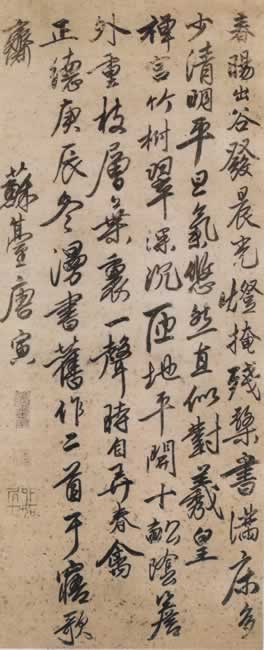 春暘出谷發晨光燈掩殘檠書滿床多
少清明平旦氣悠然直似對羲皇
竹樹翠深沉匝地平開十畝陰簷
外重枝層葉裏一聲時自弄春禽
正德庚辰冬漫書舊作二首于寤歌
齋
蘇臺唐寅